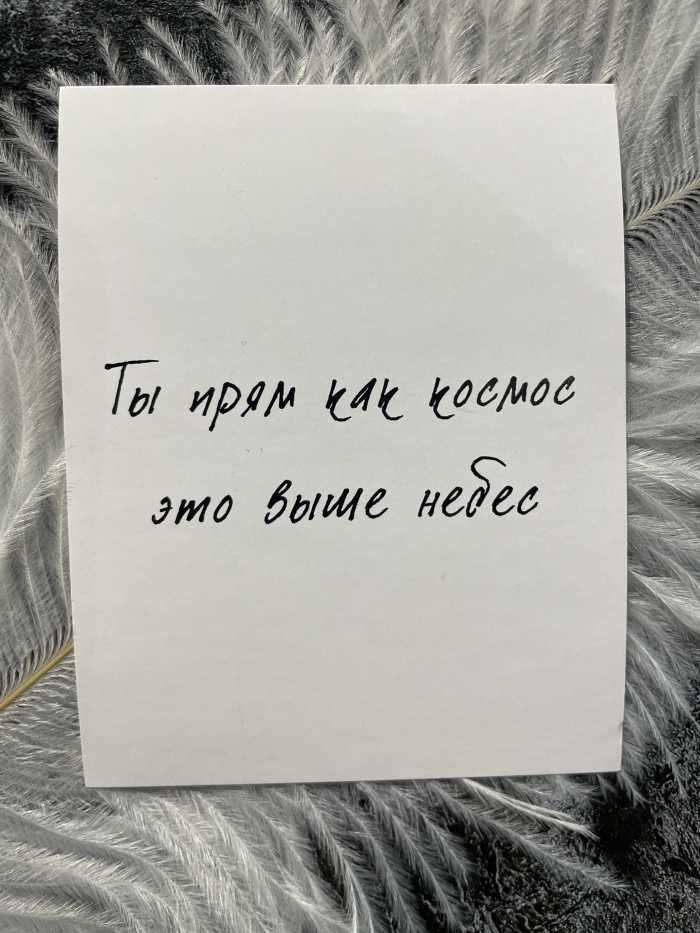 Ты прям как космос
это выше небес